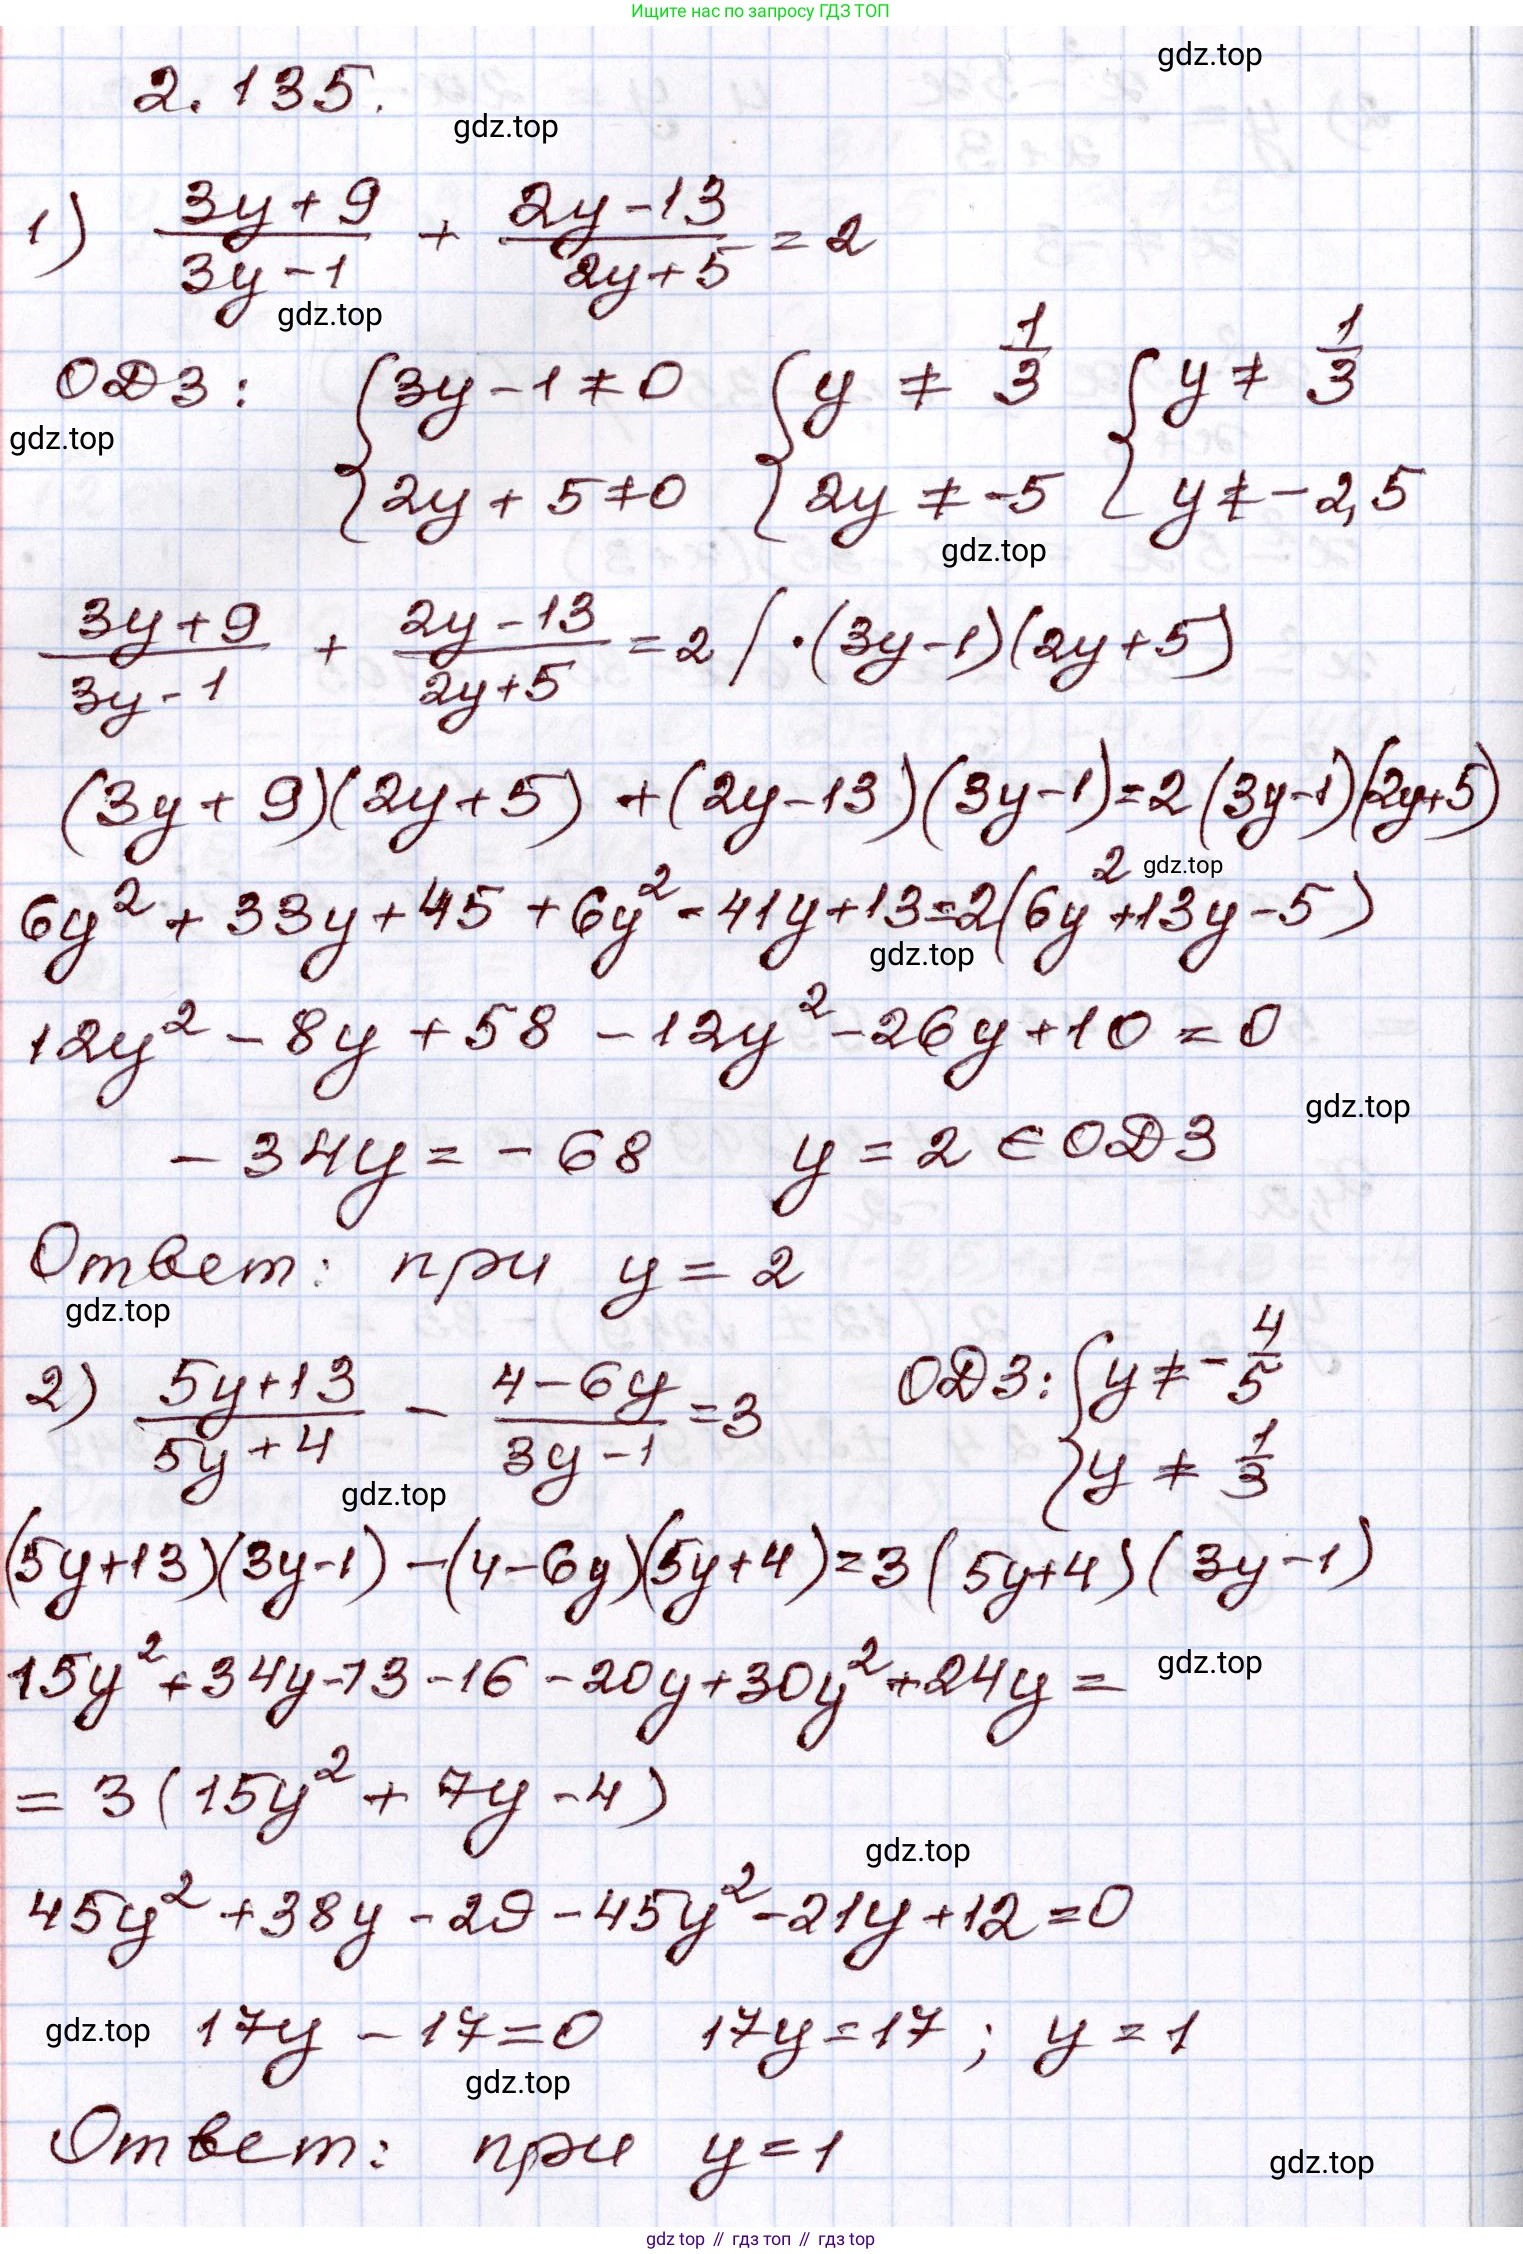 Ищите нас по запросу ГДЗ ТОП
gdz.top
2.135.
gdz.top
1) (3y+9)/(3y-1) + (2y-13)/(2y+5) = 2
gdz.top
ОДЗ: { 3y-1≠0 { y ≠ 1/3 { y ≠ 1/3
gdz.top
2y+5≠0 2y ≠ -5 y ≠ -2,5
gdz.top
(3y+9)/(3y-1) + (2y-13)/(2y+5) = 2 / ·(3y-1)(2y+5)
(3y+9)(2y+5) + (2y-13)(3y-1) = 2(3y-1)(2y+5)
gdz.top
6y² + 33y + 45 + 6y² - 41y + 13 = 2(6y² + 13y - 5)
gdz.top
12y² - 8y + 58 - 12y² - 26y + 10 = 0
gdz.top
- 34y = - 68 y = 2 ∈ ОДЗ
Ответ: при y = 2
gdz.top
2) (5y+13)/(5y+4) - (4-6y)/(3y-1) = 3 ОДЗ: { y ≠ -4/5
y ≠ 1/3
gdz.top
(5y+13)(3y-1) - (4-6y)(5y+4) = 3(5y+4)(3y-1)
15y² + 34y - 13 - 16 - 20y + 30y² + 24y =
gdz.top
= 3(15y² + 7y - 4)
gdz.top
45y² + 38y - 29 - 45y² - 21y + 12 = 0
gdz.top 17y - 17 = 0 17y = 17 ; y = 1
gdz.top
Ответ: при y = 1
gdz.top
gdz top // гдз топ // гдз top